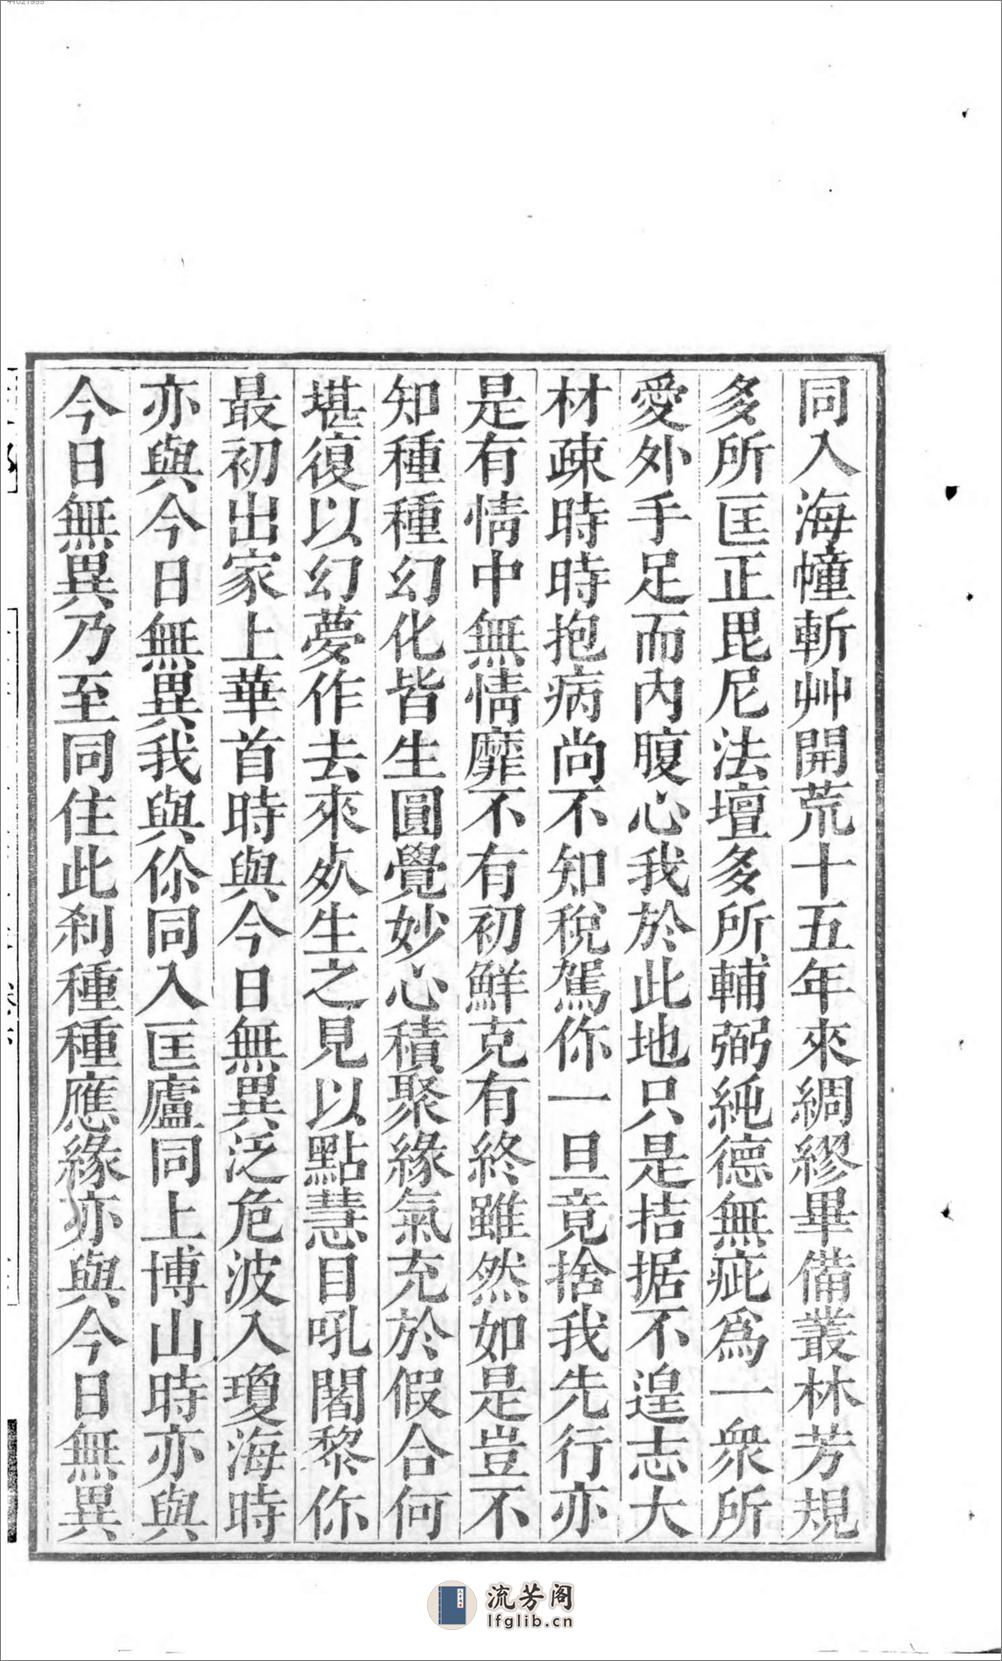 同入海幢斬艸開荒十五年來綢繆畢備叢林芳規
多所匡正毘尼法壇多所輔弼純德無疵爲一衆所
愛外手足而內腹心我於此地只是拮据不遑志大
材疎時時抱病尚不知稅駕你一旦竟捨我先行亦
是有情中無情靡不有初鮮克有終雖然如是豈不
知種種幻化皆生圓覺妙心積聚緣氣充於假合何
堪復以幻夢作去來㱼生之見以點慧目吼闍黎你
最初出家上華首時與今日無異泛危波入瓊海時
亦與今日無異我與你同入匡廬同上博山時亦與
今日無異乃至同住此刹種種應緣亦與今日無異
流芳阁
lfglib.cn